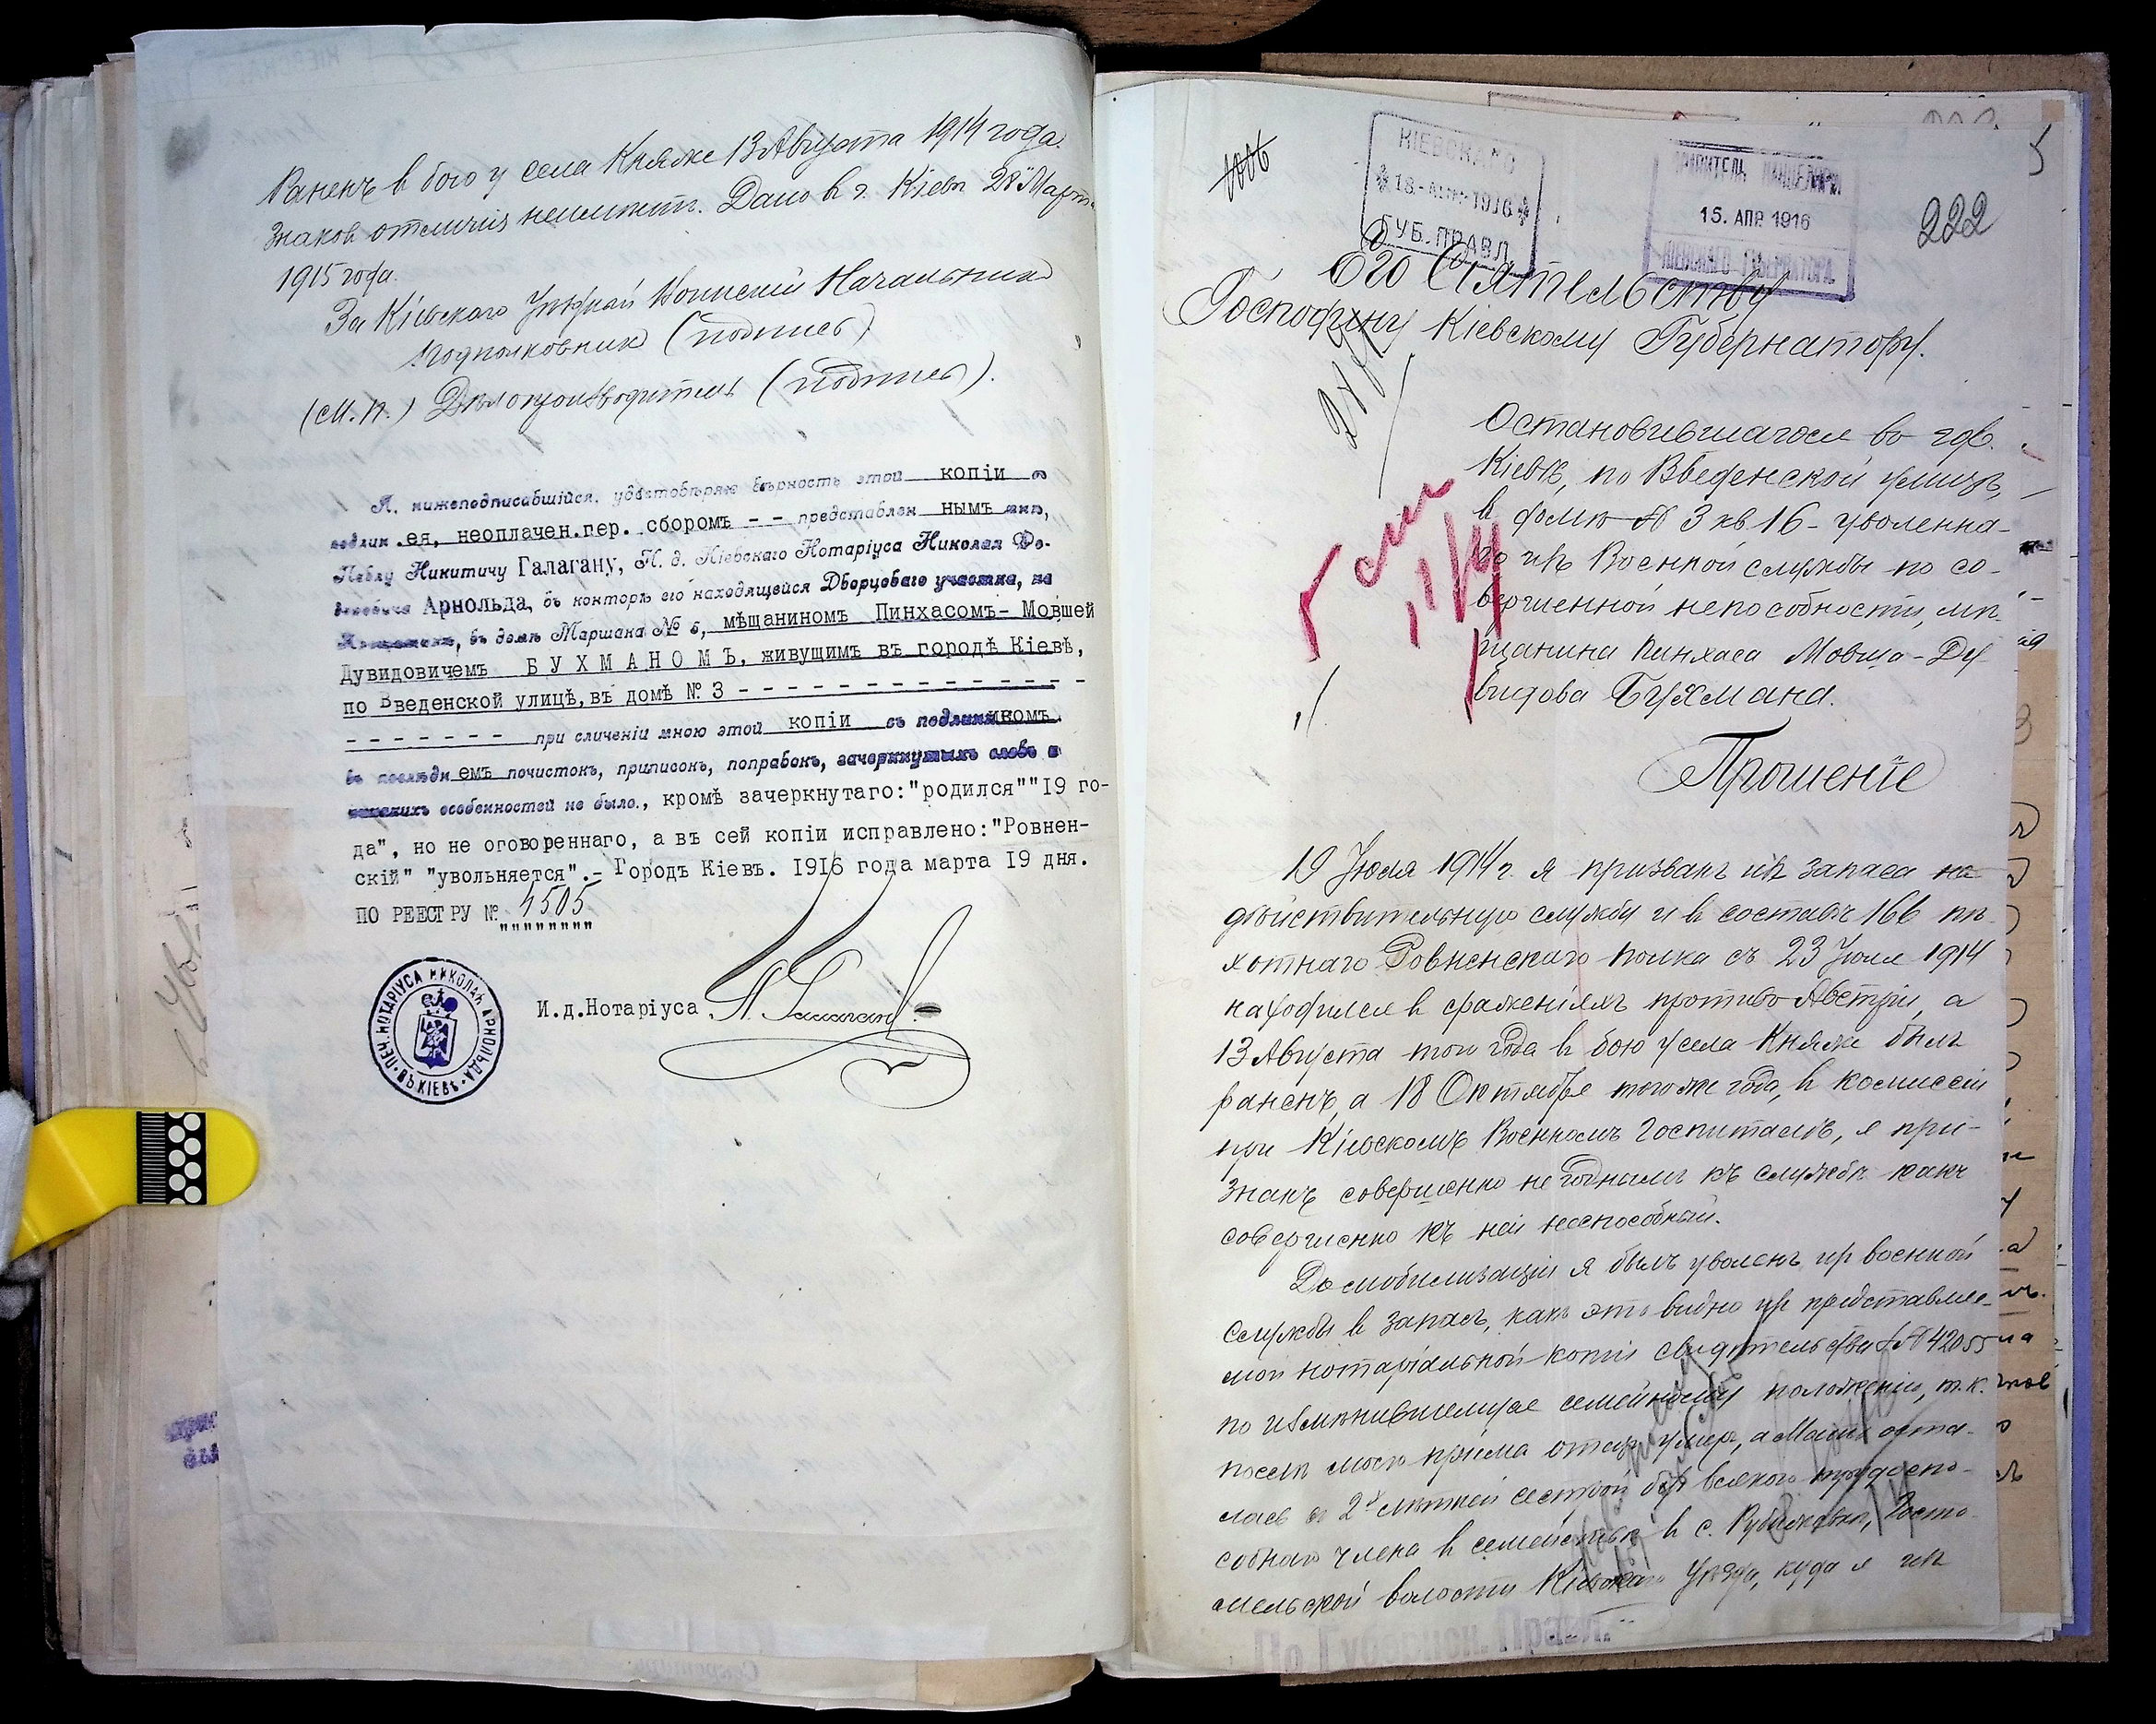 Раненъ в бою у села Княже 13 Августа 1914 года.
Знаков отличія неимѣетъ. Дано в г. Кіевѣ 28 Март
1915 года.
За Кіевскаго Уѣзднаго Воинскій Начальника
Подполковник (подпись)
(М.П.) Дѣлопроизводитель (подпись).
Я, нижеподписавшійся, удостовѣряю вѣрность этой копіи съ
подлин.ея, неоплачен.гер. сборомъ - - представлен нымъ мнѣ,
Павлу Никитичу Галагану, И. д. Кіевскаго Нотаріуса Николая Ѳе-
Арнольда, въ конторѣ его находящейся Дворцоваго участка, на
въ домѣ Маршака № 5, мѣщаниномъ Пинхасомъ-Мовшей
Дувидовичемъ БУХМАНОМЪ, живущимъ въ городѣ Кіевѣ,
по Введенской улицѣ, въ домѣ № 3 - - - - - - - - - - - - - -
- - - - - - - при сличеніи мною этой копіи съ подлинникомъ
въ послѣдн емъ почистокъ, приписокъ, поправокъ, зачеркнутыхъ словъ и
никакихъ особенностей не было., кромѣ зачеркнутаго:"родился""19 го-
да", но не оговореннаго, а въ сей копіи исправлено:"Ровнен-
скій" "увольняется".- Городъ Кіевъ. 1916 года марта 19 дня.
ПО РЕЕСТРУ № 4505
И.д.Нотаріуса
ПЕЧ. НОТАРІУСА НИКОЛАЯ АРНОЛЬДА ВЪ КІЕВѢ
КІЕВСКАГО
18-АПР-1916
ГУБ. ПРАВЛ.
ПРАВИТЕЛЬ КАНЦЕЛЯРІИ
15. АПР. 1916
КІЕВСКАГО ГУБЕРНАТОРА.
222
Его Сіятельству
Господину Кіевскому Губернатору.
Остановившагося во гор.
Кіевѣ, по Введенской улицѣ,
в домѣ № 3 кв. 16 - уволенна-
го изъ Военной службы по со-
вершенной неспособности, мѣ-
щанина Пинхаса Мовша-Ду-
видова Бухмана.
Прошеніе
19 Іюля 1914 г. я призванъ изъ запаса на
дѣйствительную службу и в составѣ 166 пѣ-
хотнаго Ровненскаго полка съ 23 Іюля 1914
находился в сраженіяхъ противо Австріи, а
13 Августа того года в бою у села Княже былъ
раненъ, а 18 Октября того же года, в комиссіи
при Кіевскомъ Военномъ Госпиталѣ, я при-
знанъ совершенно не годнымъ къ службѣ какъ
совершенно къ ней неспособный.
До мобилизаціи я былъ уволенъ изъ военной
службы в запасъ, какъ это видно изъ представляе-
мой нотаріальной копіи свидѣтельства № 42055
по измѣнившемуся семейному положенію, т.к.
послѣ моего пріема отецъ умеръ, а Мать оста-
лась с 2х лѣтней сестрой безъ всякаго трудоспо-
собнаго члена в семействѣ в с. Рубежовкѣ, Госто-
мельской волости Кіевскаго Уѣзда, куда я изъ
По Губернск. Правл.